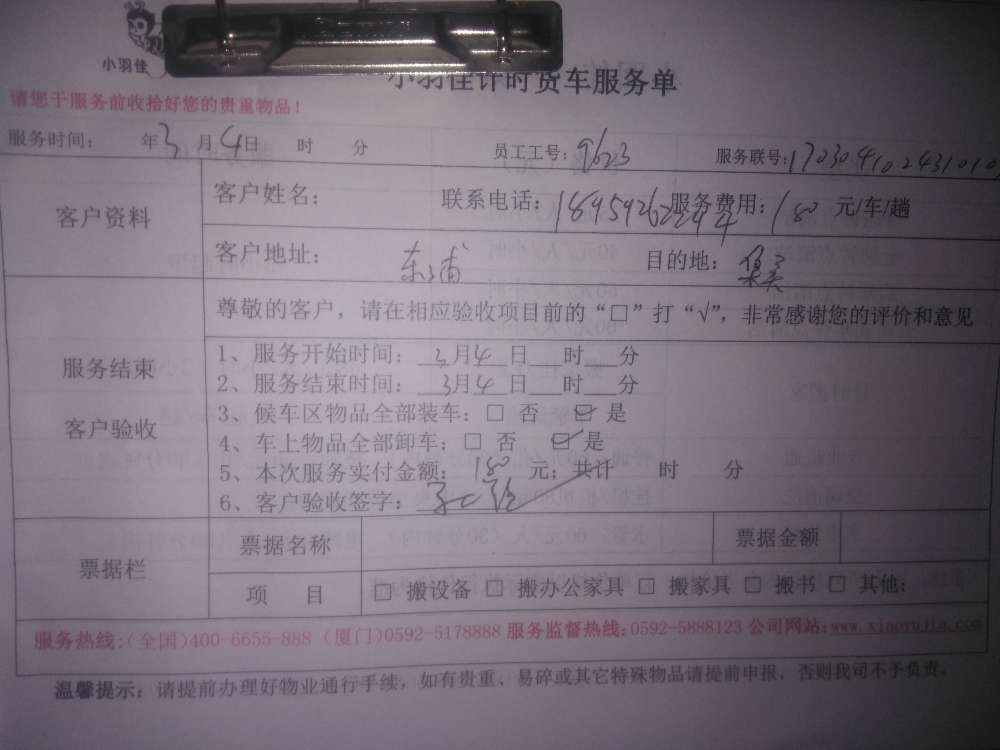 小羽佳
小羽佳计时货车服务单
请您于服务前收拾好您的贵重物品！
服务时间： 年3月4日 时 分 员工工号：9623 服务联号：170304102431010
客户资料
客户姓名： 联系电话： 服务费用：180 元/车/趟
客户地址：东浦 目的地：集美
服务结束
客户验收
尊敬的客户，请在相应验收项目前的“□”打“√”，非常感谢您的评价和意见
1、服务开始时间：3月4日 时 分
2、服务结束时间：3月4日 时 分
3、候车区物品全部装车：□ 否 ☑ 是
4、车上物品全部卸车：□ 否 ☑ 是
5、本次服务实付金额：180 元；共计 时 分
6、客户验收签字：
票据栏
票据名称 票据金额
项 目 □ 搬设备 □ 搬办公家具 □ 搬家具 □ 搬书 □ 其他：
服务热线：(全国)400-6655-888 (厦门)0592-5178888 服务监督热线：0592-5888123 公司网站：www.xiaoyujia.com
温馨提示：请提前办理好物业通行手续，如有贵重、易碎或其它特殊物品请提前申报，否则我司不予负责。